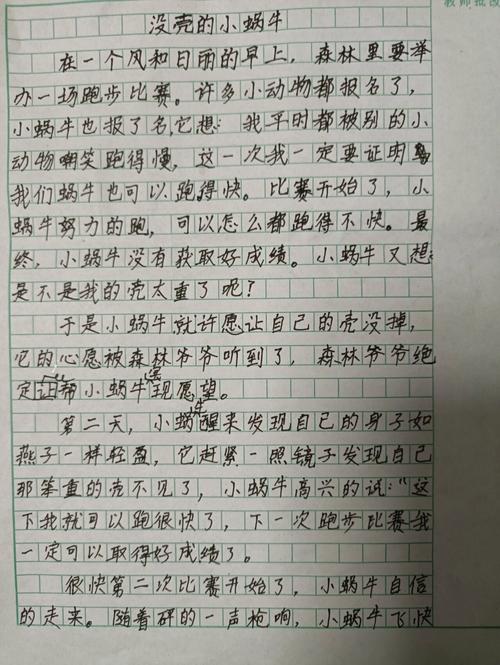 教师批改
没壳的小蜗牛
在一个风和日丽的早上，森林里要举
办一场跑步比赛。许多小动物都报名了，
小蜗牛也报了名，它想：我平时都被别的小
动物嘲笑跑得慢，这一次我一定要证明
我们蜗牛也可以跑得快。比赛开始了，小
蜗牛努力的跑，可以怎么都跑得不快。最
终，小蜗牛没有获取好成绩。小蜗牛又想：
是不是我的壳太重了呢？
于是小蜗牛就许愿让自己的壳没掉，
它的心愿被森林爷爷听到了，森林爷爷绝
定帮小蜗牛实现愿望。
第二天，小蜗牛醒来发现自己的身子如
燕子一样轻盈，它赶紧一照镜子发现自己
那笨重的壳不见了，小蜗牛高兴的说："这
下我就可以跑很快了，下一次跑步比赛我
一定可以取得好成绩了。
很快第二次比赛开始了，小蜗牛自信
的走来。随着砰的一声枪响，小蜗牛飞快